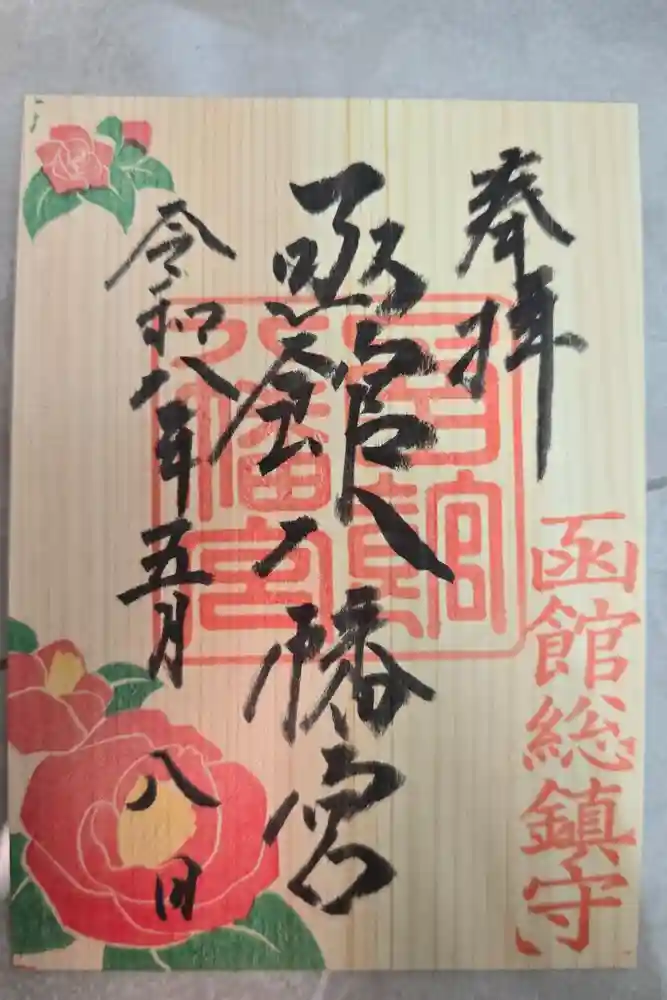 奉拝
函館総鎮守
函館八幡宮
令和八年五月八日